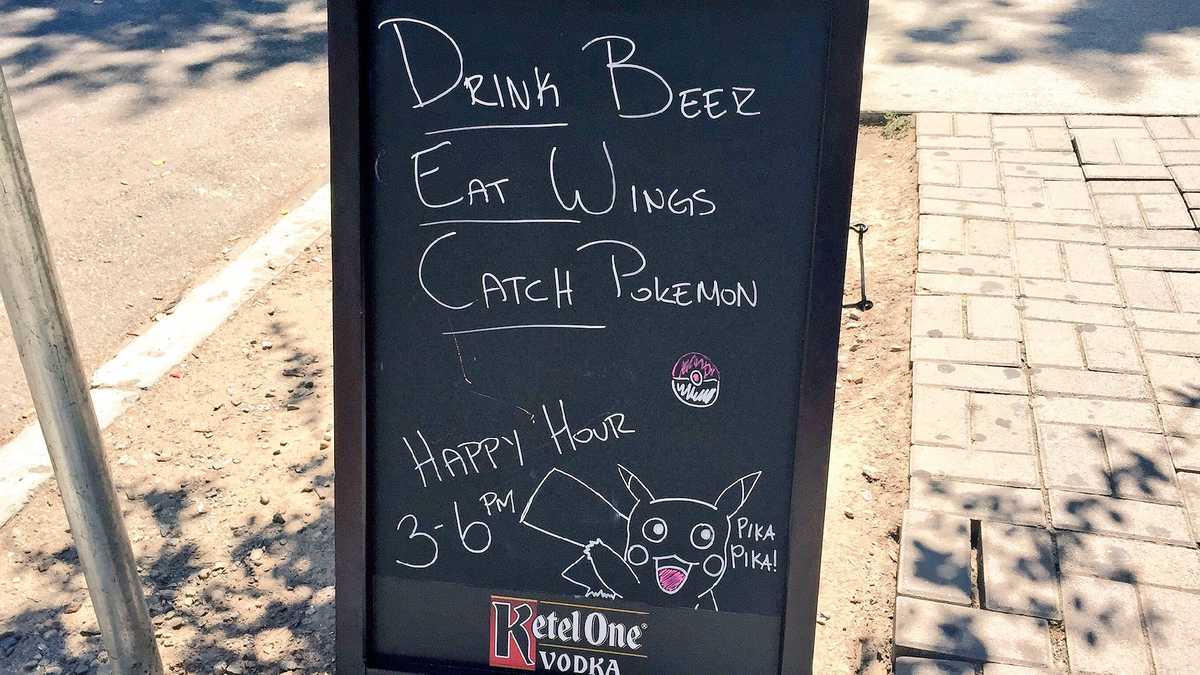 DRINK BEER
EAT WINGS
CATCH POKEMON
HAPPY HOUR
3-6 PM
PIKA
PIKA!
Ketel One®
VODKA